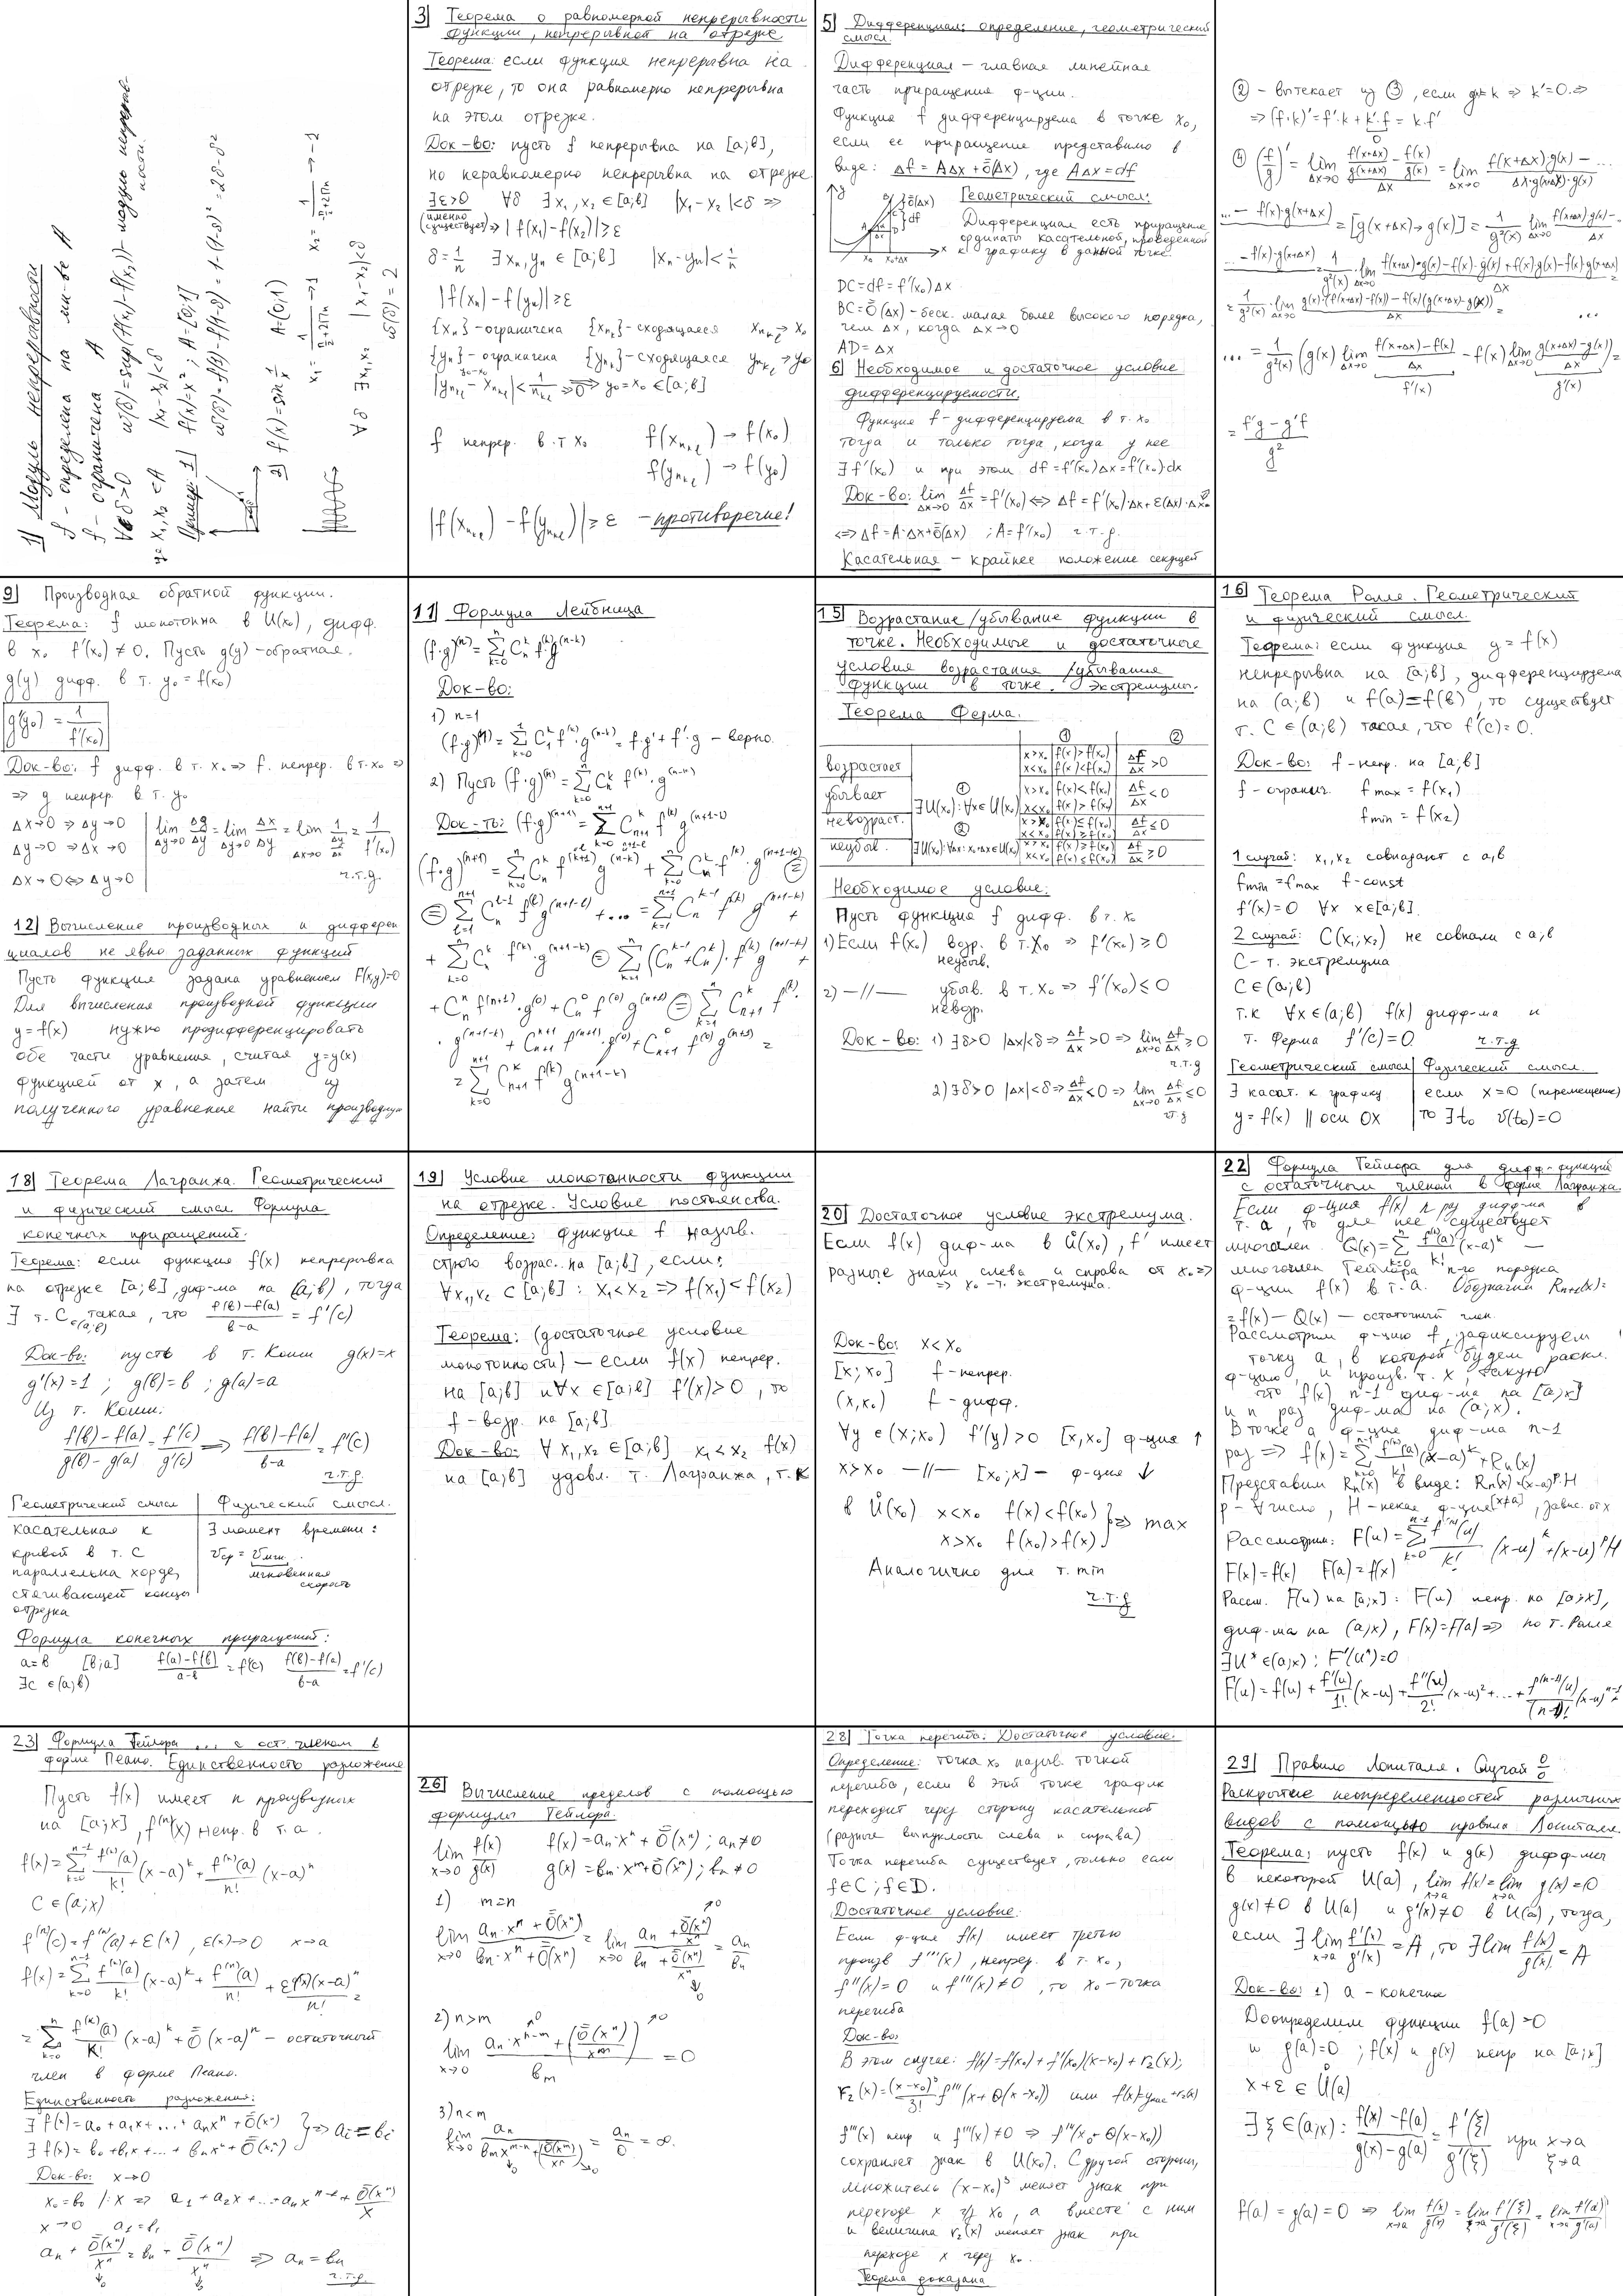 1) Модуль непрерывности
f - определена на мн-ве A
f - ограничена A
∀δ>0 ω(δ)=sup(f(x₁)-f(x₂)) - модуль непрерывности.
x₁,x₂ ∈A |x₁-x₂|<δ
Пример: 1) f(x)=x²; A=[0;1]
ω(δ)=f(1)-f(1-δ)=1-(1-δ)²=2δ-δ²
2) f(x)=sin 1/x A=(0;1)
∀δ ∃x₁x₂ |x₁-x₂|<δ
ω(δ)=2
3) Теорема о равномерной непрерывности
функции, непрерывной на отрезке
Теорема: если функция непрерывна на
отрезке, то она равномерно непрерывна
на этом отрезке.
Док-во: пусть f непрерывна на [a;b],
но неравномерно непрерывна на отрезке
∃ε>0 ∀δ ∃x₁,x₂∈[a;b] |x₁-x₂|<δ ⇒
(именно существует) ⇒ |f(x₁)-f(x₂)|≥ε
δ=1/n ∃xₙ,yₙ∈[a;b] |xₙ-yₙ|<1/n
|f(xₙ)-f(yₙ)|≥ε
{xₙ}-ограничена {xₙₖ}-сходящаяся xₙₖ→x₀
{yₙ}-ограничена {yₙₖ}-сходящаяся yₙₖ→y₀
|yₙₖ-xₙₖ|<1/nₖ→0 ⇒ y₀=x₀∈[a;b]
f непрер. в т x₀ f(xₙₖ)→f(x₀)
f(yₙₖ)→f(y₀)
|f(xₙₖ)-f(yₙₖ)|≥ε - противоречие!
5) Дифференциал: определение, геометрический
смысл.
Дифференциал - главная линейная
часть приращения ф-ции.
Функция f дифференцируема в точке x₀,
если ее приращение представимо в
виде: Δf=AΔx+ō(Δx), где AΔx=df
Геометрический смысл:
Дифференциал есть приращение
ординаты касательной, проведенной
к графику в данной точке.
DC=df=f'(x₀)Δx
BC=ō(Δx)-беск. малая более высокого порядка,
чем Δx, когда Δx→0
AD=Δx
6) Необходимое и достаточное условие
дифференцируемости.
Функция f - дифференцируема в т. x₀
тогда и только тогда, когда у нее
∃f'(x₀) и при этом df=f'(x₀)Δx=f'(x₀)·dx
Док-во: lim Δx→0 Δf/Δx=f'(x₀) ⇔ Δf=f'(x₀)·Δx+ε(Δx)·Δx
⇔Δf=A·Δx+ō(Δx) ; A=f'(x₀) ч.т.д.
Касательная - крайнее положение секущей
② - вытекает из ③, если g=k ⇒ k'=0 ⇒
⇒(f·k)'=f'·k+k'·f=k·f'
④ (f/g)'=lim Δx→0 (f(x+Δx)/g(x+Δx)-f(x)/g(x))/Δx=lim Δx→0 (f(x+Δx)·g(x)-...)/(Δx·g(x+Δx)·g(x))
...-f(x)·g(x+Δx) =[g(x+Δx)→g(x)]=1/g²(x) lim Δx→0 (f(x+Δx)·g(x)-...)/Δx
...-f(x)·g(x+Δx) =1/g²(x)·lim Δx→0 (f(x+Δx)·g(x)-f(x)·g(x)+f(x)g(x)-f(x)·g(x+Δx))/Δx
=1/g²(x)·lim Δx→0 (g(x)·(f(x+Δx)-f(x))-f(x)(g(x+Δx)-g(x)))/Δx= ...
...=1/g²(x)(g(x) lim Δx→0 (f(x+Δx)-f(x))/Δx-f(x) lim Δx→0 (g(x+Δx)-g(x))/Δx)=
f'(x) g'(x)
=(f'g-g'f)/g²
9) Производная обратной функции.
Теорема: f монотонна в U(x₀), дифф.
в x₀ f'(x₀)≠0. Пусть g(y)-обратная.
g(y) дифф. в т. y₀=f(x₀)
g'(y₀)=1/f'(x₀)
Док-во: f дифф. в т. x₀ ⇒ f. непрер. в т. x₀ ⇒
⇒ g непрер. в т. y₀
Δx→0 ⇒ Δy→0 lim Δy→0 Δg/Δy=lim Δy→0 Δx/Δy=lim Δx→0 1/(Δy/Δx)=1/f'(x₀)
Δy→0 ⇒ Δx→0
Δx→0⇔Δy→0 ч.т.д.
12) Вычисление производных и дифферен
циалов не явно заданных функций
Пусть функция задана уравнением F(x;y)=0
Для вычисления производной функции
y=f(x) нужно продифференцировать
обе части уравнения, считая y=y(x)
функцией от x, а затем из
полученного уравнения найти производную
11) Формула Лейбница
(f·g)⁽ⁿ⁾=∑ k=0 n Cₙᵏ f⁽ᵏ⁾g⁽ⁿ⁻ᵏ⁾
Док-во:
1) n=1
(f·g)⁽¹⁾=∑ k=0 C₁ᵏ f⁽ᵏ⁾·g⁽ⁿ⁻ᵏ⁾=f·g'+f'·g - верно.
2) Пусть (f·g)⁽ⁿ⁾=∑ k=0 n Cₙᵏ f⁽ᵏ⁾·g⁽ⁿ⁻ᵏ⁾
Док-ть: (f·g)⁽ⁿ⁺¹⁾=∑ k=0 n+1 Cₙ₊₁ᵏ f⁽ᵏ⁾ g⁽ⁿ⁺¹⁻ᵏ⁾
(f·g)⁽ⁿ⁺¹⁾=∑ k=0 n Cₙᵏ f⁽ᵏ⁺¹⁾g⁽ⁿ⁻ᵏ⁾+∑ k=0 n Cₙᵏ f⁽ᵏ⁾·g⁽ⁿ⁺¹⁻ᵏ⁾ =
=∑ Cₙ f g +...=∑ k=1 n+1 Cₙᵏ⁻¹ f⁽ᵏ⁾ g⁽ⁿ⁺¹⁻ᵏ⁾ +
+∑ k=0 n Cₙᵏ f⁽ᵏ⁾·g⁽ⁿ⁺¹⁻ᵏ⁾ = ∑ k=1 n (Cₙᵏ⁻¹+Cₙᵏ)·f⁽ᵏ⁾g⁽ⁿ⁺¹⁻ᵏ⁾ +
+Cₙⁿ f⁽ⁿ⁺¹⁾·g⁽⁰⁾+Cₙ⁰ f⁽⁰⁾g⁽ⁿ⁺¹⁾ = ∑ k=1 n Cₙ₊₁ᵏ f⁽ᵏ⁾·
·g⁽ⁿ⁺¹⁻ᵏ⁾+Cₙ₊₁ⁿ⁺¹ f⁽ⁿ⁺¹⁾·g⁽⁰⁾+Cₙ₊₁⁰ f⁽⁰⁾g⁽ⁿ⁺¹⁾ =
=∑ k=0 n+1 Cₙ₊₁ᵏ f⁽ᵏ⁾g⁽ⁿ⁺¹⁻ᵏ⁾
15) Возрастание/убывание функции в
точке. Необходимые и достаточное
условия возрастание/убывание
функции в точке. Экстремумы.
Теорема Ферма.
① ②
возрастает x>x₀ f(x)>f(x₀) Δf/Δx>0
x<x₀ f(x)<f(x₀)
убывает ① ∃U(x₀):∀x∈U(x₀) x>x₀ f(x)<f(x₀) Δf/Δx<0
x<x₀ f(x)>f(x₀)
невозраст. x>x₀ f(x)≤f(x₀) Δf/Δx≤0
② x<x₀ f(x)≥f(x₀)
неубыв. ∃U(x₀):∀x: x₀+Δx∈U(x₀) x>x₀ f(x)≥f(x₀) Δf/Δx≥0
x<x₀ f(x)≤f(x₀)
Необходимое условие:
Пусть функция f дифф. в т. x₀
1) Если f(x₀) возр. в т. x₀ ⇒ f'(x₀)≥0
неубыв.
2) —//— убыв. в т. x₀ ⇒ f'(x₀)≤0
невозр.
Док-во: 1) ∃δ>0 |Δx|<δ ⇒ Δf/Δx>0 ⇒ lim Δx→0 Δf/Δx≥0
ч.т.д
2) ∃δ>0 |Δx|<δ ⇒ Δf/Δx<0 ⇒ lim Δx→0 Δf/Δx≤0
ч.т.д
16) Теорема Ролле. Геометрический
и физический смысл.
Теорема: если функция y=f(x)
непрерывна на [a;b], дифференцируема
на (a;b) и f(a)=f(b), то существует
т. C∈(a;b) такая, что f'(c)=0.
Док-во: f-непр. на [a;b]
f-огранич. fmax=f(x₁)
fmin=f(x₂)
1 случай: x₁,x₂ совпадают с a,b
fmin=fmax f-const
f'(x)=0 ∀x x∈[a;b].
2 случай: C(x₁;x₂) не совпали с a;b
C-т. экстремума
C∈(a;b)
т.к ∀x∈(a;b) f(x) дифф-ма и
т. Ферма f'(c)=0 ч.т.д
Геометрический смысл Физический смысл.
∃ касат. к графику если x=0 (перемещение)
y=f(x) || оси OX то ∃t₀ v(t₀)=0
18) Теорема Лагранжа. Геометрический
и физический смысл Формула
конечных приращений.
Теорема: если функция f(x) непрерывна
на отрезке [a;b], диф-ма на (a;b), тогда
∃ т. C∈(a;b) такая, что (f(b)-f(a))/(b-a)=f'(c)
Док-во: пусть в т. Коши g(x)=x
g'(x)=1; g(b)=b; g(a)=a
Из т. Коши:
(f(b)-f(a))/(g(b)-g(a))=f'(c)/g'(c) ⇒ (f(b)-f(a))/(b-a)=f'(c)
ч.т.д.
Геометрический смысл Физический смысл.
касательная к ∃ момент времени:
кривой в т. C vср=vмгн.
параллельна хорде, мгновенная
стягивающей концы скорость
отрезка
Формула конечных приращений:
a=b [b;a] (f(a)-f(b))/(a-b)=f'(c) (f(b)-f(a))/(b-a)=f'(c)
∃c∈(a;b)
19) Условие монотонности функции
на отрезке. Условие постоянства.
Определение: функция f назыв.
строго возрас. на [a;b], если:
∀x₁,x₂ ⊂[a;b]: x₁<x₂ ⇒ f(x₁)<f(x₂)
Теорема: (достаточное условие
монотонности) - если f(x) непрер.
на [a;b] и ∀x∈[a;b] f'(x)>0, то
f-возр. на [a;b].
Док-во: ∀x₁,x₂∈[a;b] x₁<x₂ f(x)
на [a;b] удовл. т. Лагранжа, т.к
20) Достаточное условие экстремума.
Если f(x) диф-ма в Ů(x₀), f' имеет
разные знаки слева и справа от x₀ ⇒
⇒ x₀-т. экстремума.
Док-во: x<x₀
[x;x₀] f-непрер.
(x,x₀) f-дифф.
∀y∈(x;x₀) f'(y)>0 [x,x₀] ф-ция ↑
x>x₀ —//— [x₀;x]- ф-ция ↓
в Ů(x₀) x<x₀ f(x)<f(x₀) } ⇒ max
x>x₀ f(x₀)>f(x)
Аналогично для т. min
ч.т.д
22) Формула Тейлора для дифф-функций
с остаточным членом в форме Лагранжа.
Если ф-ция f(x) n раз дифф-ма в
т. a, то для нее существует
многочлен Q(x)=∑ k=0 n f⁽ᵏ⁾(a)/k! (x-a)ᵏ —
многочлен Тейлора n-го порядка
ф-ции f(x) в т. a. Обозначим Rₙ₊₁(x)=
=f(x)-Q(x) - остаточный член.
Рассмотрим ф-цию f, зафиксируем
точку a, в которой будем раскл.
ф-цию, и произв. т. x, такую
что f(x) n-1 диф-ма на [a;x]
и n раз диф-ма на (a;x).
В точке a ф-ция диф-ма n-1
раз ⇒ f(x)=∑ k=0 n-1 f⁽ᵏ⁾(a)/k! (x-a)ᵏ+Rₙ(x)
Представим Rₙ(x) в виде: Rₙ(x)=(x-a)ᵖ·H
p-∀число, H-некая ф-ция (x≠a), завис. от x
Рассмотрим: F(u)=∑ k=0 n-1 f⁽ᵏ⁾(u)/k! (x-u)ᵏ+(x-u)ᵖH
F(x)=f(x) F(a)=f(x)
Рассм. F(u) на [a;x]: F(u) непр. на [a;x],
диф-ма на (a;x), F(x)=F(a) ⇒ по т. Ролле
∃u*∈(a;x): F'(u*)=0
F(u)=f(u)+f'(u)/1! (x-u)+f''(u)/2! (x-u)²+...+f⁽ⁿ⁻¹⁾(u)/(n-1)! (x-u)ⁿ⁻¹+
23) Формула Тейлора ... с ост. членом в
форме Пеано. Единственность разложения
Пусть f(x) имеет n производных
на [a;x], f⁽ⁿ⁾(x) непр. в т. a.
f(x)=∑ k=0 n-1 f⁽ᵏ⁾(a)/k! (x-a)ᵏ+f⁽ⁿ⁾(a)/n! (x-a)ⁿ
C∈(a;x)
f⁽ⁿ⁾(c)=f⁽ⁿ⁾(a)+ε(x), ε(x)→0 x→a
f(x)=∑ k=0 n-1 f⁽ᵏ⁾(a)/k! (x-a)ᵏ+f⁽ⁿ⁾(a)/n!+ε(x)(x-a)ⁿ/n! =
=∑ k=0 n f⁽ᵏ⁾(a)/k! (x-a)ᵏ+ō(x-a)ⁿ - остаточный
член в форме Пеано.
Единственность разложения:
∃f(x)=a₀+a₁x+...+aₙxⁿ+ō(xⁿ) } ⇒ aᵢ=bᵢ
∃f(x)=b₀+b₁x+...+bₙxⁿ+ō(xⁿ)
Док-во: x→0
x₀=b₀ |:x ⇒ a₁+a₂x+...+aₙxⁿ⁻¹+ō(xⁿ)/x
x→0 a₁=b₁
aₙ+ō(xⁿ)/xⁿ=bₙ+ō(xⁿ)/xⁿ ⇒ aₙ=bₙ
ч.т.д.
26) Вычисление пределов с помощью
формулы Тейлора.
lim x→0 f(x)/g(x) f(x)=aₙ·xⁿ+ō(xⁿ); aₙ≠0
g(x)=bₘ·xᵐ+ō(xⁿ); bₙ≠0
1) m=n
lim x→0 (aₙ·xⁿ+ō(xⁿ))/(bₙ·xⁿ+ō(xⁿ))=lim x→0 (aₙ+ō(xⁿ)/xⁿ)/(bₙ+ō(xⁿ)/xⁿ)=aₙ/bₙ
2) n>m
lim x→0 (aₙ·xⁿ⁻ᵐ+(ō(xⁿ)/xᵐ))/bₘ=0
3) n<m
lim x→0 aₙ/(bₘxᵐ⁻ⁿ+(ō(xᵐ)/xⁿ))=aₙ/0=∞.
28) Точка перегиба: Достаточное условие.
Определение: точка x₀ назыв. точкой
перегиба, если в этой точке график
переходит через сторону касательной
(разные выпуклости слева и справа)
Точка перегиба существует, только если
f∈C; f∈D.
Достаточное условие:
Если ф-ция f(x) имеет третью
произв f'''(x), непрер. в т. x₀,
f''(x)=0 и f'''(x)≠0, то x₀-точка
перегиба
Док-во:
В этом случае: f(x)=f(x₀)+f'(x₀)(x-x₀)+r₂(x);
r₂(x)=(x-x₀)³/3! f'''(x+θ(x-x₀)) или f(x)=yкас+r₂(x)
f'''(x) непр и f'''(x)≠0 ⇒ f'''(x₀+θ(x-x₀))
сохраняет знак в U(x₀). С другой стороны,
множитель (x-x₀)³ меняет знак при
переходе x ч/з x₀, а вместе с ним
и величина r₂(x) меняет знак при
переходе x через x₀.
Теорема доказана
29) Правило Лопиталя. Случай 0/0
Раскрытие неопределенностей различных
видов с помощью правила Лопиталя.
Теорема: пусть f(x) и g(x) дифф-мы
в некоторой U(a), lim x→a f(x)=lim x→a g(x)=0
g(x)≠0 в U(a) и g'(x)≠0 в U(a), тогда,
если ∃lim x→a f'(x)/g'(x)=A, то ∃lim f(x)/g(x)=A
Док-во: 1) a-конечна
Доопределим функции f(a)=0
и g(a)=0; f(x) и g(x) непр на [a;x]
x+ξ∈Ů(a)
∃ξ∈(a;x): (f(x)-f(a))/(g(x)-g(a))=f'(ξ)/g'(ξ) при x→a
ξ→a
f(a)=g(a)=0 ⇒ lim x→a f(x)/g(x)=lim ξ→a f'(ξ)/g'(ξ)=lim x→a f'(a)/g'(a)